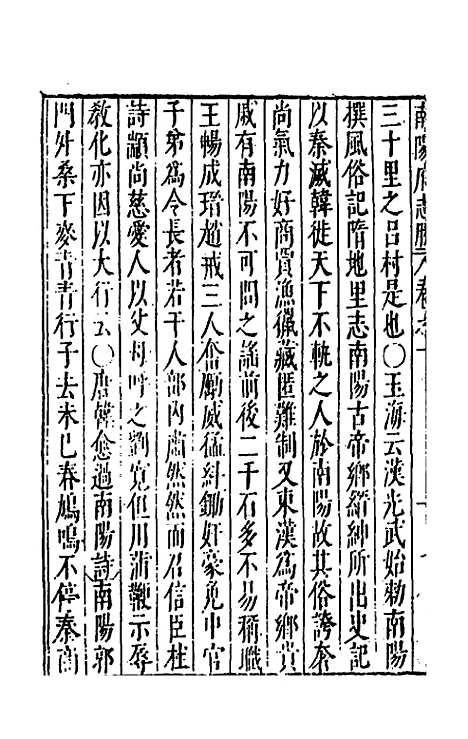 南陽府志
三十里之吕村是也〇玉海云漢光武始勅南陽
撰風俗記隋地里志南陽古帝鄉縉紳所出史記
以秦滅韓徙天下不軌之人於南陽故其俗誇奢
尚氣力好商賈漁獵藏匿難制又東漢為帝鄉貴
戚有南陽不可問之謠前後二千石多不易稱職
王暢成瑨趙戒三人奮勵威猛糾鋤奸豪免中官
子弟爲令長者若干人部內肅然然而召信臣杜
詩顓尚慈愛人以父母呼之劉寬但用蒲鞭示辱
教化亦因以大行云〇唐韓愈過南陽詩南陽郭
門外桑下麥青青行子去未已春鳩鳴不停秦商